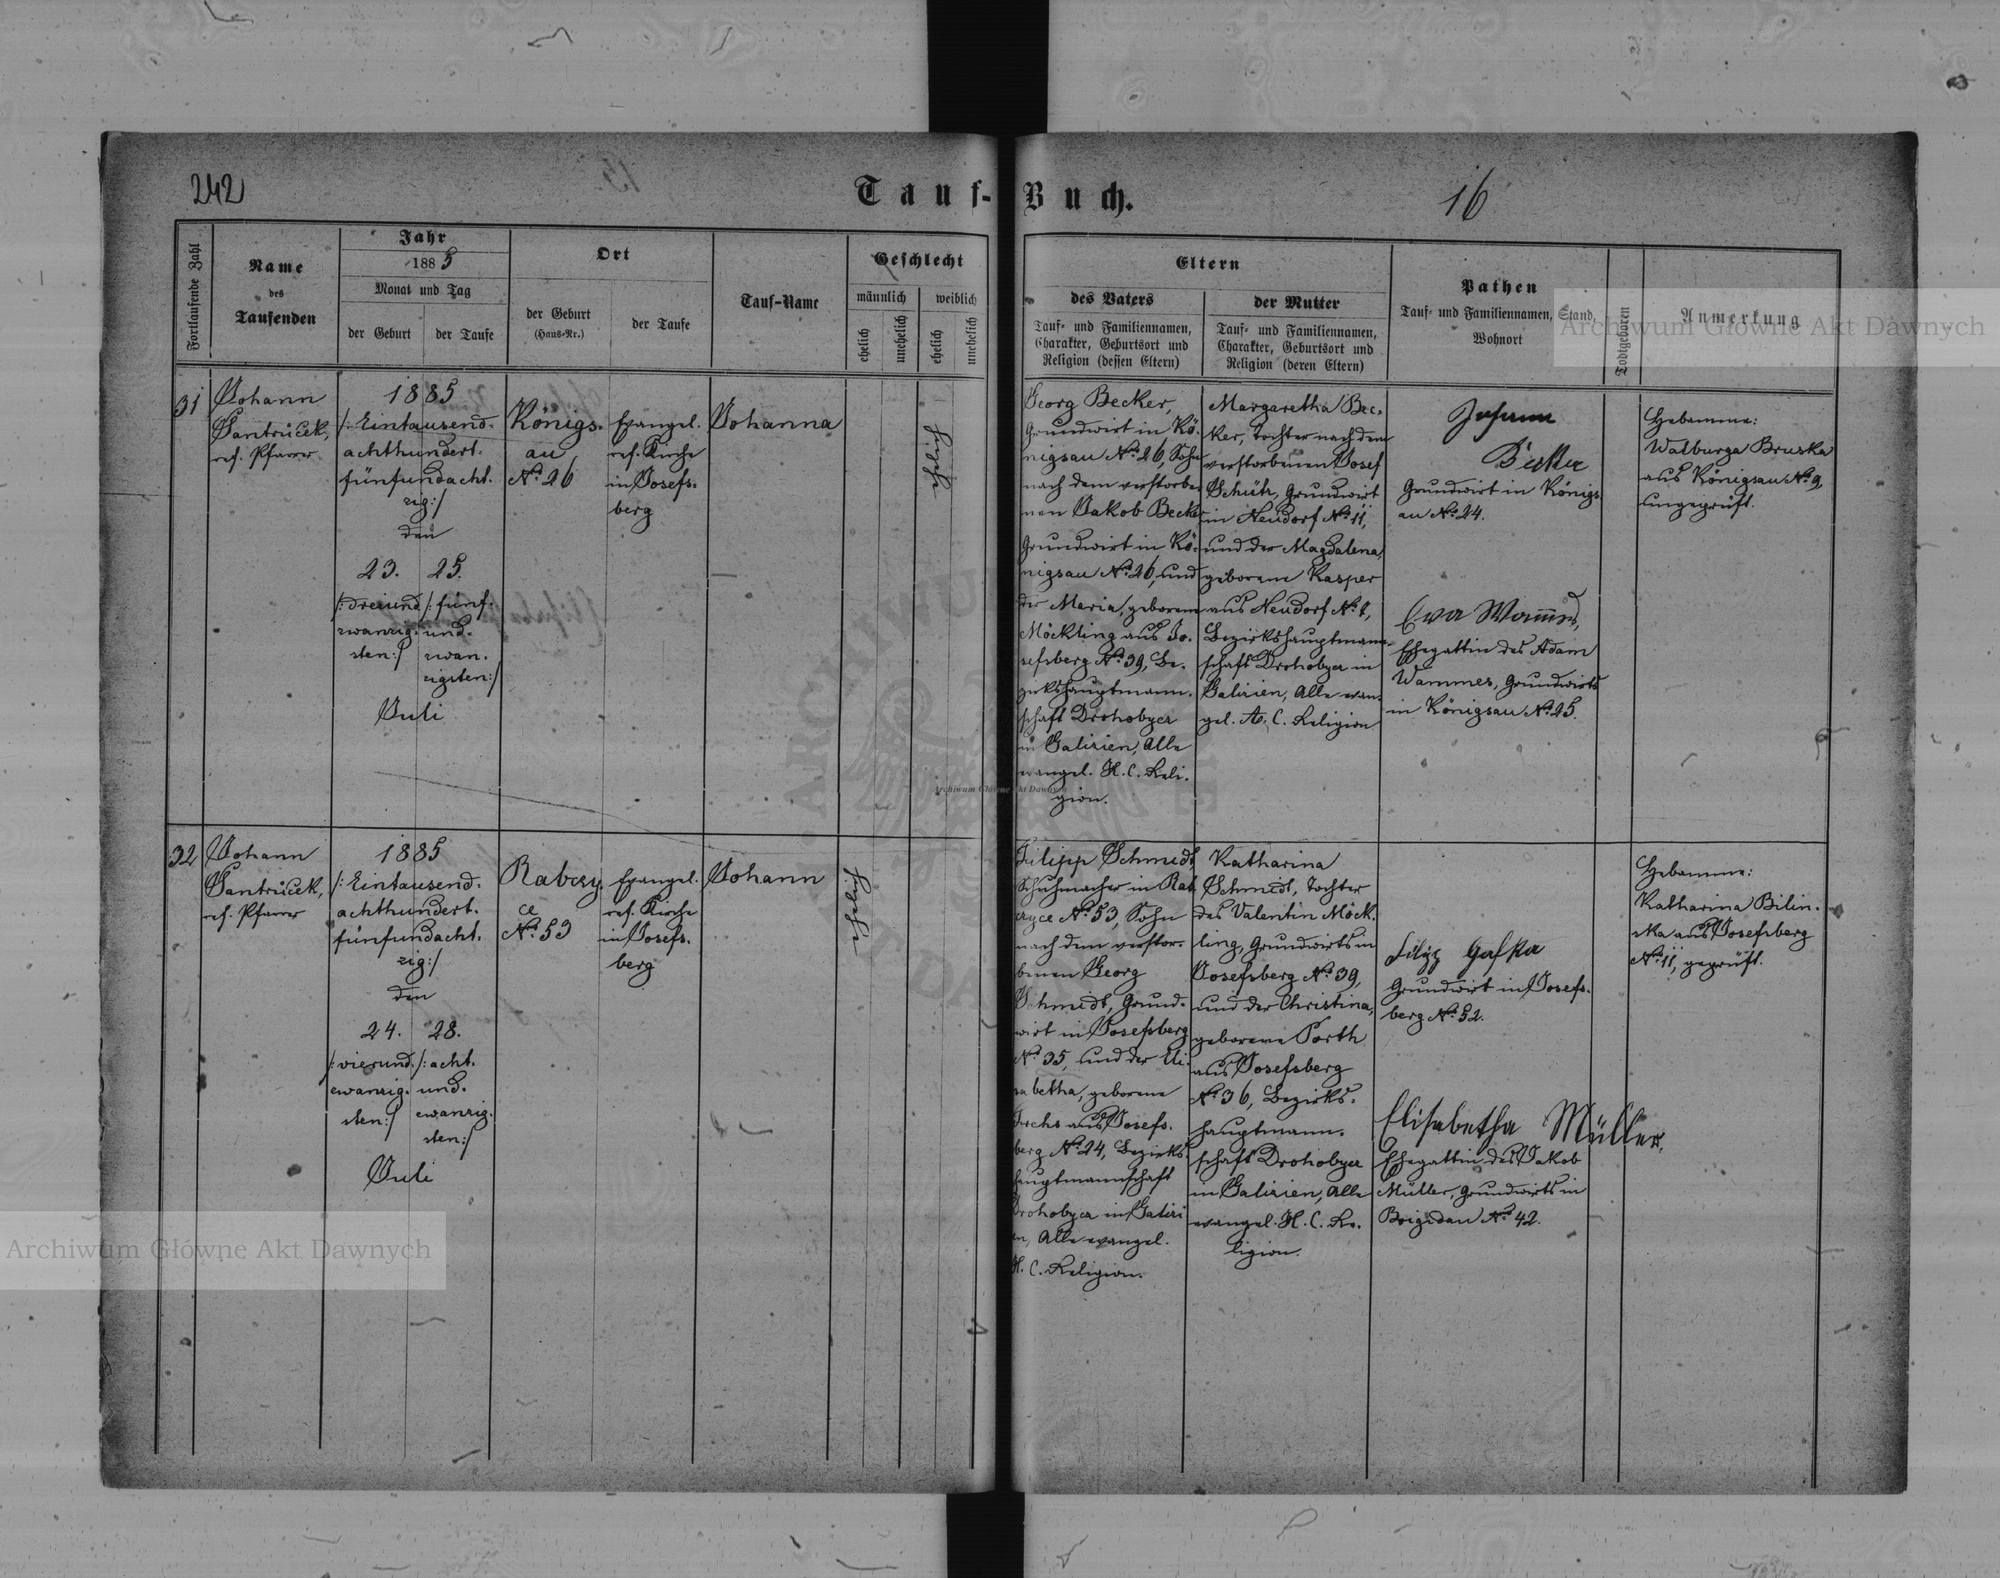 242
Tauf-Buch.
16
Fortlaufende Zahl
Name
des
Taufenden
Jahr
1885
Monat und Tag
der Geburt
der Taufe
Ort
der Geburt
(Haus-Nr.)
der Taufe
Tauf-Name
Geschlecht
männlich
weiblich
ehelich
unehelich
ehelich
unehelich
Eltern
des Vaters
Tauf- und Familiennamen,
Charakter, Geburtsort und
Religion (dessen Eltern)
der Mutter
Tauf- und Familiennamen,
Charakter, Geburtsort und
Religion (deren Eltern)
Pathen
Tauf- und Familiennamen, Stand,
Wohnort
Todtgeboren
Anmerkung
31
Johann
Jantrůček,
ref. Pfarrer
1885
/:Eintausend-
achthundert-
fünfundacht-
zig:/
den
23.
/:dreiund
zwanzig-
sten:/
25.
/:fünf-
und-
zwan-
zigsten:/
Juli
Königs-
au
No 26
Evangel.
ref. Kirche
in Josefs-
berg
Johanna
ehelich
Georg Becker,
Grundwirt in Kö-
nigsau No 26, Sohn
nach dem verstorbe-
nen Jakob Becker
Grundwirt in Kö-
nigsau No 26, und
der Maria, geborene
Möckling aus Jo-
sefsberg No 39, Be-
zirkshauptmann-
schaft Drohobycz
in Galizien, Alle
evangel. H. C. Reli-
gion.
Margaretha Bec-
ker, Tochter nach dem
verstorbenen Josef
Schütz, Grundwirt
in Neudorf No 11,
und der Magdalena,
geborene Kasper
aus Neudorf No
Bezirkshauptmann-
schaft Drohobycz in
Galizien, Alle evan-
gel. A. C. Religion
Johann
Becker
Grundwirt in Königs-
au No 24.
Eva Wammes,
Ehegattin des Adam
Wammes, Grundwirts
in Königsau No 25.
Hebamme:
Walburga Bruska
aus Königsau No 9,
ungeprüft.
32
Johann
Jantrůček,
ref. Pfarrer
1885
/:Eintausend-
achthundert-
fünfundacht-
zig:/
den
24.
/:vierund
zwanzig-
sten:/
28.
/:acht-
und-
zwanzig-
sten:/
Juli
Rabczy-
ce
No 53
Evangel.
ref. Kirche
in Josefs-
berg
Johann
ehelich
Filipp Schmidt
Schuhmacher in Rab-
czyce No 53, Sohn
nach dem verstor-
benen Georg
Schmidt, Grund-
wirt in Josefsberg
No 35, und der Eli-
sabetha, geborene
aus Josefs-
berg No 24, Bezirks-
hauptmannschaft
Drohobycz in Galizi-
en, Alle evangel.
H. C. Religion.
Katharina
Schmidt, Tochter
des Valentin Möck-
ling, Grundwirts in
Josefsberg No 39,
und der Christina,
geborene Porth
aus Josefsberg
No 36, Bezirks-
hauptmann-
schaft Drohobycz
in Galizien, Alle
evangel. H. C. Re-
ligion.
Filipp
Grundwirt in Josefs-
berg No 52.
Elisabetha Müller,
Ehegattin des Jakob
Müller, Grundwirts in
Brigidau No 42.
Hebamme:
Katharina Bilin-
ska aus Josefsberg
No 11, geprüft.
Archiwum Główne Akt Dawnych
Archiwum Główne Akt Dawnych
Archiwum Główne Akt Dawnych